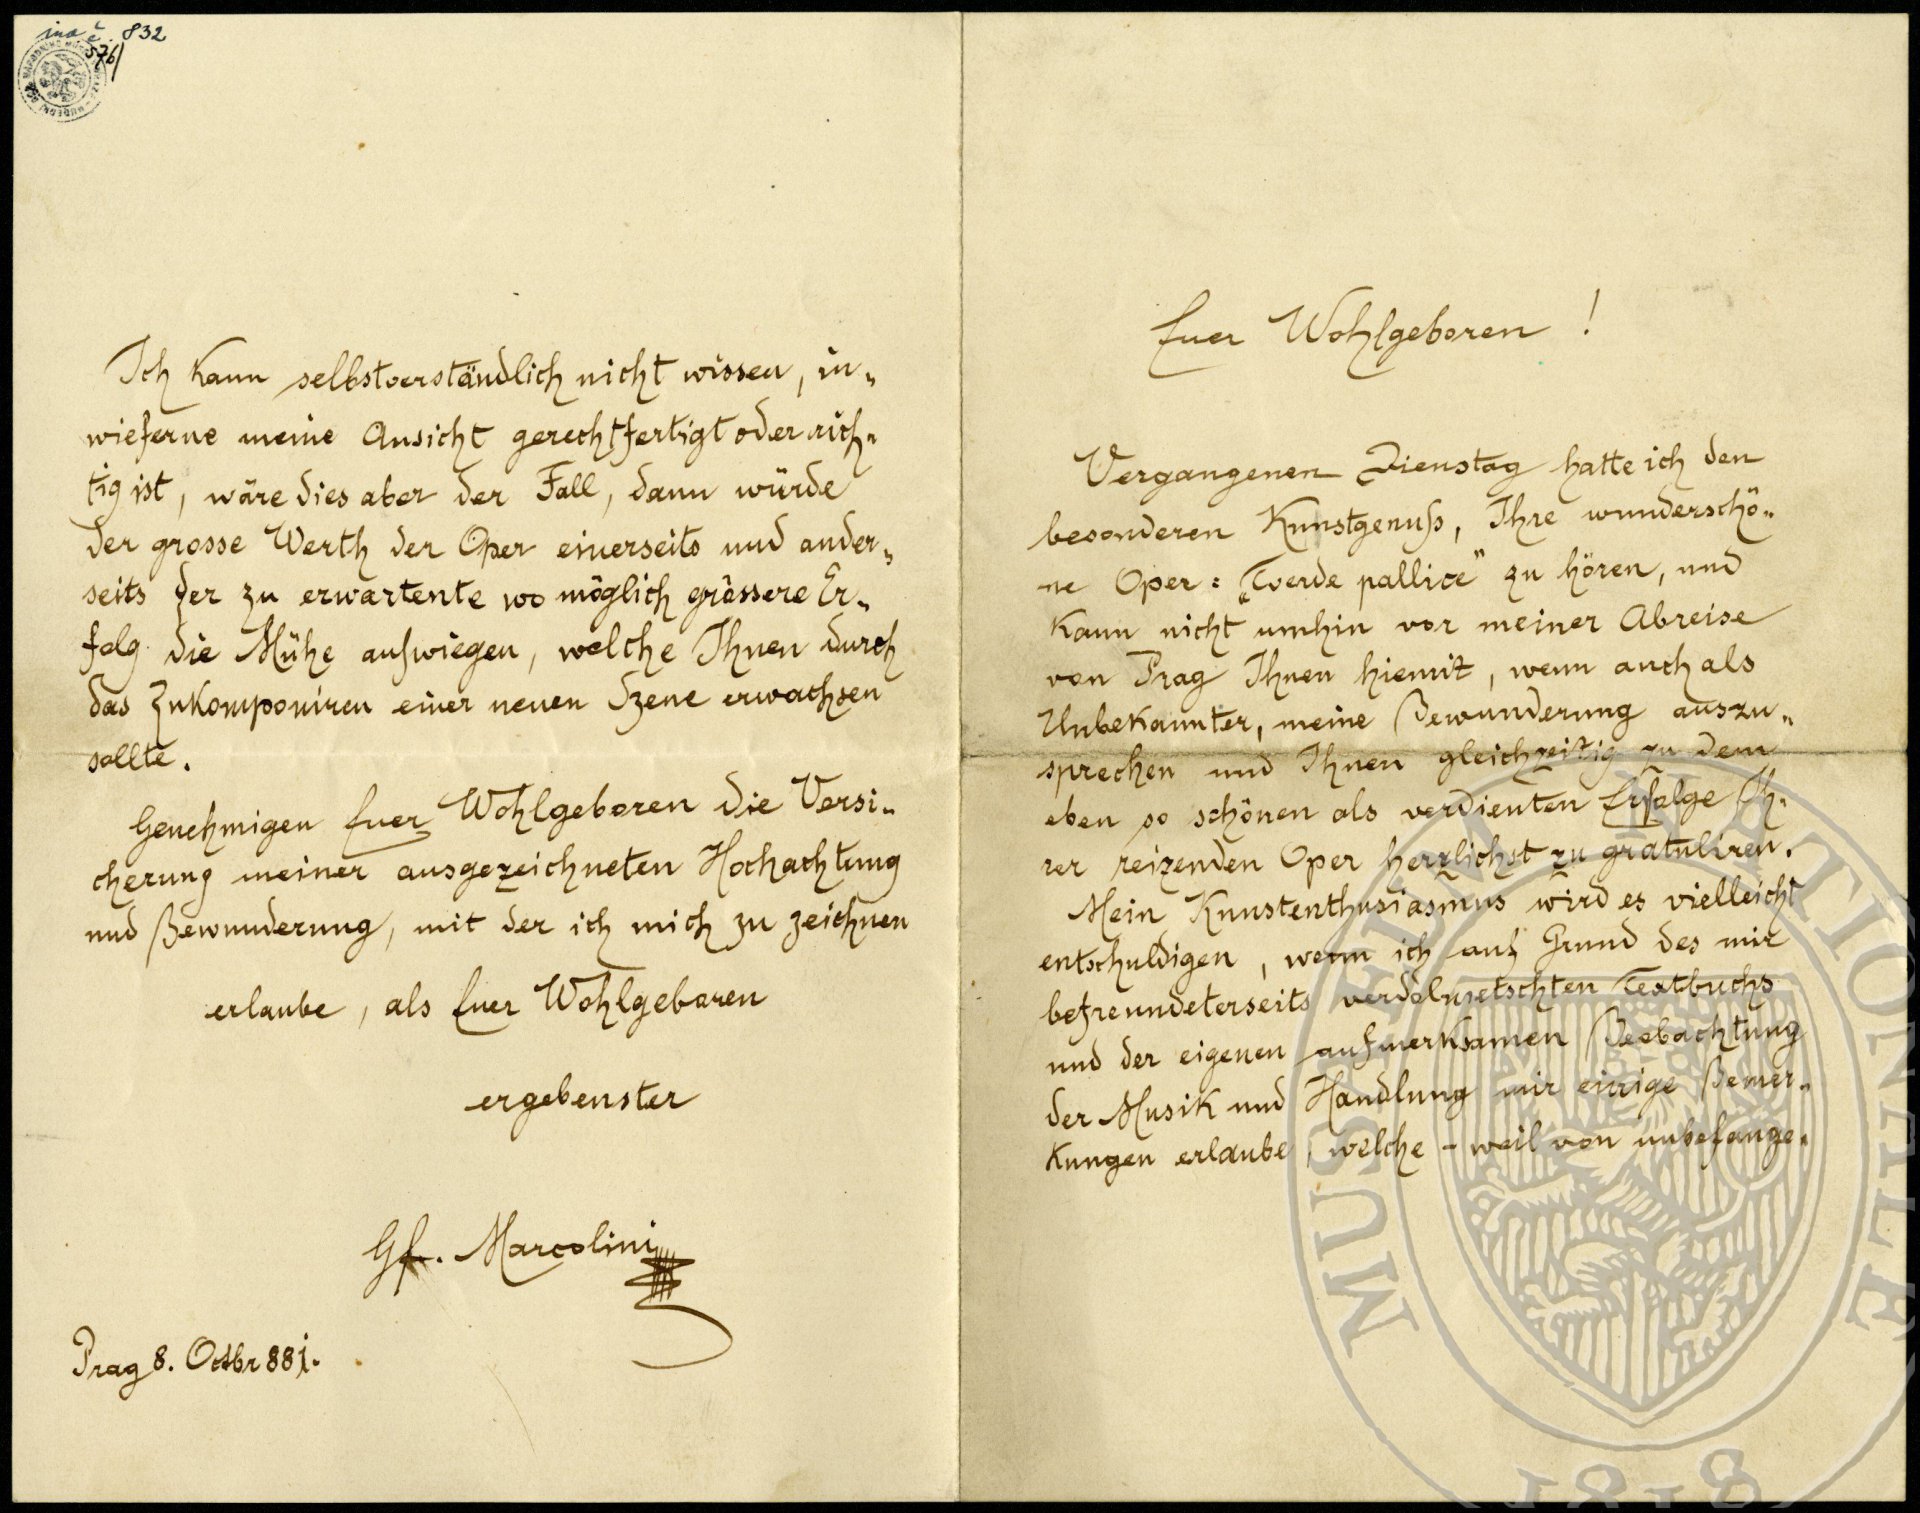 Euer Wohlgeboren !
Vergangenen Dienstag hatte ich den
besonderen Kunstgenuß, Ihre wunderschö„
ne Oper : „Tverde pallice“ zu hören, und
kann nicht umhin vor meiner Abreise
von Prag Ihnen hiemit, wenn auch als
Unbekannter, meine Bewunderung auszu„
sprechen und Ihnen gleichzeitig zu dem
eben so schönen als verdienten Erfolge Ih-
rer reizenden Oper herzlichst zu gratuliren.
Mein Kunstenthusiasmus wird es vielleicht
entschuldigen, wenn ich auf Grund des mir
befreundeterseits verdolmetschten Textbuchs
und der eigenen aufmerksamen Beobachtung
der Musik und Handlung mir einige Bemer„
kungen erlaube, welche – weil von unbefange„
ina č. 832
576/
Ich kann selbstverständlich nicht wissen, in„
wieferne meine Ansicht gerechtfertigt oder rich„
tig ist, wäre dies aber der Fall, dann würde
der grosse Werth der Oper einerseits und ander„
seits der zu erwartente wo möglich grössere Er„
folg die Mühe aufwiegen, welche Ihnen durch
das Zukomponiren einer neuen Szene erwachsen
sollte.
Genehmigen Euer Wohlgeboren die Versi„
cherung meiner ausgezeichneten Hochachtung
und Bewunderung, mit der ich mich zu zeichnen
erlaube, als Euer Wohlgeboren
ergebenster
Gf. Marcolini
Prag 8. Octbr 881.
MUSEUM NATIONALE
1818